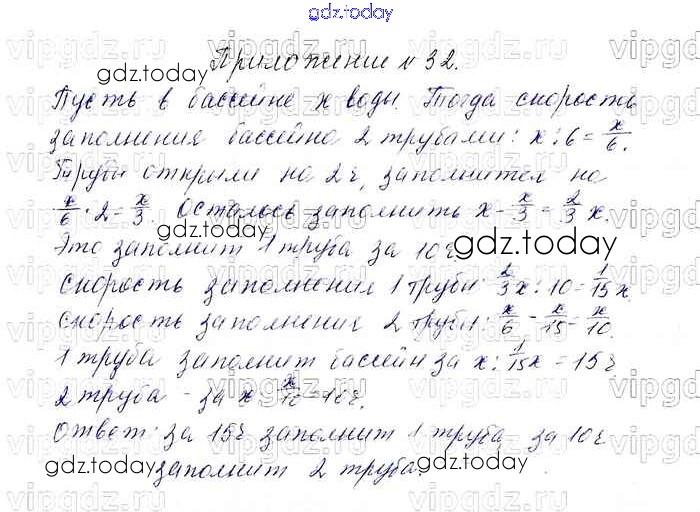 gdz.today
Приложение № 32.
gdz.today
Пусть в бассейне x воды. Тогда скорость
заполнения бассейна 2 трубами: x : 6 = x/6.
Трубы открыли на 2 ч, заполнится на
x/6 · 2 = x/3. Осталось заполнить x - x/3 = 2/3 x.
gdz.today
Это заполнит 1 труба за 10 ч.
gdz.today
Скорость заполнения 1 трубы 2/3 x : 10 = 1/15 x.
Скорость заполнения 2 трубы: x/6 - x/15 = x/10.
1 труба заполнит бассейн за x : 1/15 x = 15 ч
2 труба - за x : x/10 = 10 ч.
Ответ: за 15 ч заполнит 1 труба, за 10 ч
gdz.today заполнит 2 труба. gdz.today
vipgdz.ru